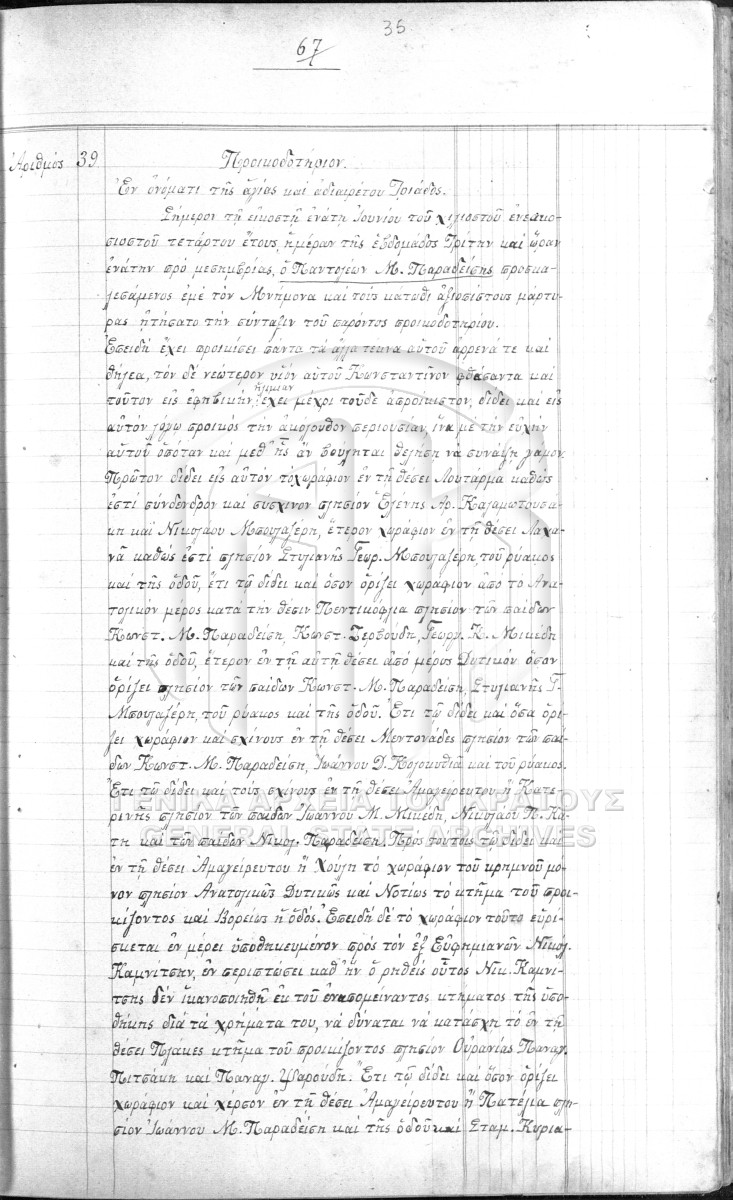 35
67
Ἀριθμὸς 39
Προικοδοτήριον.
Ἐν ὀνόματι τῆς ἁγίας καὶ ἀδιαιρέτου Τριάδος.
Σήμερον τῇ εἰκοστῇ ἐνάτῃ Ἰουνίου τοῦ χιλιοστοῦ ἐνεακο-
σιοστοῦ τετάρτου ἔτους, ἡμέραν τῆς ἑβδομάδος Τρίτην καὶ ὥραν
ἐνάτην πρὸ μεσημβρίας, ὁ Παντολέων Μ. Παραδείσης προσκα-
λεσάμενος ἐμὲ τὸν Μνήμονα καὶ τοὺς κάτωθι ἀξιοπίστους μάρτυ-
ρας ᾐτήσατο τὴν σύνταξιν τοῦ παρόντος προικοδοτηρίου.
Ἐπειδὴ ἔχει προικίσει πάντα τὰ ἄλλα τέκνα αὐτοῦ ἄρρενά τε καὶ
θήλεα, τὸν δὲ νεώτερον υἱὸν αὐτοῦ Κωνσταντῖνον φθάσαντα καὶ
τοῦτον εἰς ἐφηβικὴν ἡλικίαν ἔχει μέχρι τοῦδε ἀπροίκιστον, δίδει καὶ εἰς
αὐτὸν λόγῳ προικὸς τὴν ἀκόλουθον περιουσίαν, ἵνα μὲ τὴν εὐχήν
αὐτοῦ ὁπόταν καὶ μεθ' ἧς ἂν βούληται θελήσῃ νὰ συνάψῃ γάμον.
Πρῶτον δίδει εἰς αὐτὸν τὸ χωράφιον ἐν τῇ θέσει Λουτάρμα καθὼς
ἐστὶ σύνδενδρον καὶ σύσχινον πλησίον Ἑλένης Ἀρ. Καλαμωτουσά-
κη καὶ Νικολάου Μπουλαζέρη, ἕτερον χωράφιον ἐν τῇ θέσει Λαχα-
νᾶ καθὼς ἐστὶ πλησίον Στυλιανῆς Γεωρ. Μπουλαζέρη, τοῦ ρύακος
καὶ τῆς ὁδοῦ, ἔτι τῷ δίδει καὶ ὅσον ὁρίζει χωράφιον ἀπὸ τὸ Ἀνα-
τολικὸν μέρος κατὰ τὴν θέσιν Πεντικόφλια πλησίον τῶν παίδων
Κωνστ. Μ. Παραδείση, Κωνστ. Ζερβούδη, Γεωργ. Κ. Μικέδη
καὶ τῆς ὁδοῦ, ἕτερον ἐν τῇ αὐτῇ θέσει ἀπὸ μέρος Δυτικὸν ὅσον
ὁρίζει πλησίον τῶν παίδων Κωνστ. Μ. Παραδείση, Στυλιανῆς Γ.
Μπουλαζέρη, τοῦ ρύακος καὶ τῆς ὁδοῦ. Ἔτι τῷ δίδει καὶ ὅσα ὁρί-
ζει χωράφιον καὶ σχίνους ἐν τῇ θέσει Μεντονάδες πλησίον τῶν παί-
δων Κωνστ. Μ. Παραδείση, Ἰωάννου Δ. Κολοκυθιᾶ καὶ τοῦ ρύακος.
Ἔτι τῷ δίδει καὶ τοὺς σχίνους ἐν τῇ θέσει Ἀμαγείρευτου ἢ Κατε-
ρίνης πλησίον τῶν παίδων Ἰωάννου Μ. Μικέδη, Νικολάου Π. Κά-
τη καὶ τῶν παίδων Νικολ. Παραδείση. Πρὸς τούτοις τῷ δίδει καὶ
ἐν τῇ θέσει Ἀμαγείρευτου ἢ Χούλη τὸ χωράφιον τοῦ κρημνοῦ μό-
νον πλησίον Ἀνατολικῶς Δυτικῶς καὶ Νοτίως τὸ κτῆμα τοῦ προι-
κίζοντος καὶ Βορείως ἡ ὁδός. Ἐπειδὴ δὲ τὸ χωράφιον τοῦτο εὑρί-
σκεται ἐν μέρει ὑποθηκευμένον πρὸς τὸν ἐξ Εὐφημιανῶν Νικολ.
Καμνίτσην, ἐν περιπτώσει καθ' ἣν ὁ ρηθεὶς οὗτος Νικ. Καμνί-
τσης δὲν ἱκανοποιηθῇ ἐκ τοῦ ἐναπομείναντος κτήματος τῆς ὑπο-
θήκης διὰ τὰ χρήματά του, νὰ δύναται νὰ κατάσχῃ τὸ ἐν τῇ
θέσει Πλάκες κτῆμα τοῦ προικίζοντος πλησίον Οὐρανίας Παναγ.
Πιτσάκη καὶ Παναγ. Ψαρούδη. Ἔτι τῷ δίδει καὶ ὅσον ὁρίζει
χωράφιον καὶ χέρσον ἐν τῇ θέσει Ἀμαγείρευτου ἢ Πατέλια πλη-
σίον Ἰωάννου Μ. Παραδείση καὶ τῆς ὁδοῦ καὶ Σταμ. Κυρια-
ΓΕΝΙΚΑ ΑΡΧΕΙΑ ΤΟΥ ΚΡΑΤΟΥΣ
GENERAL STATE ARCHIVES